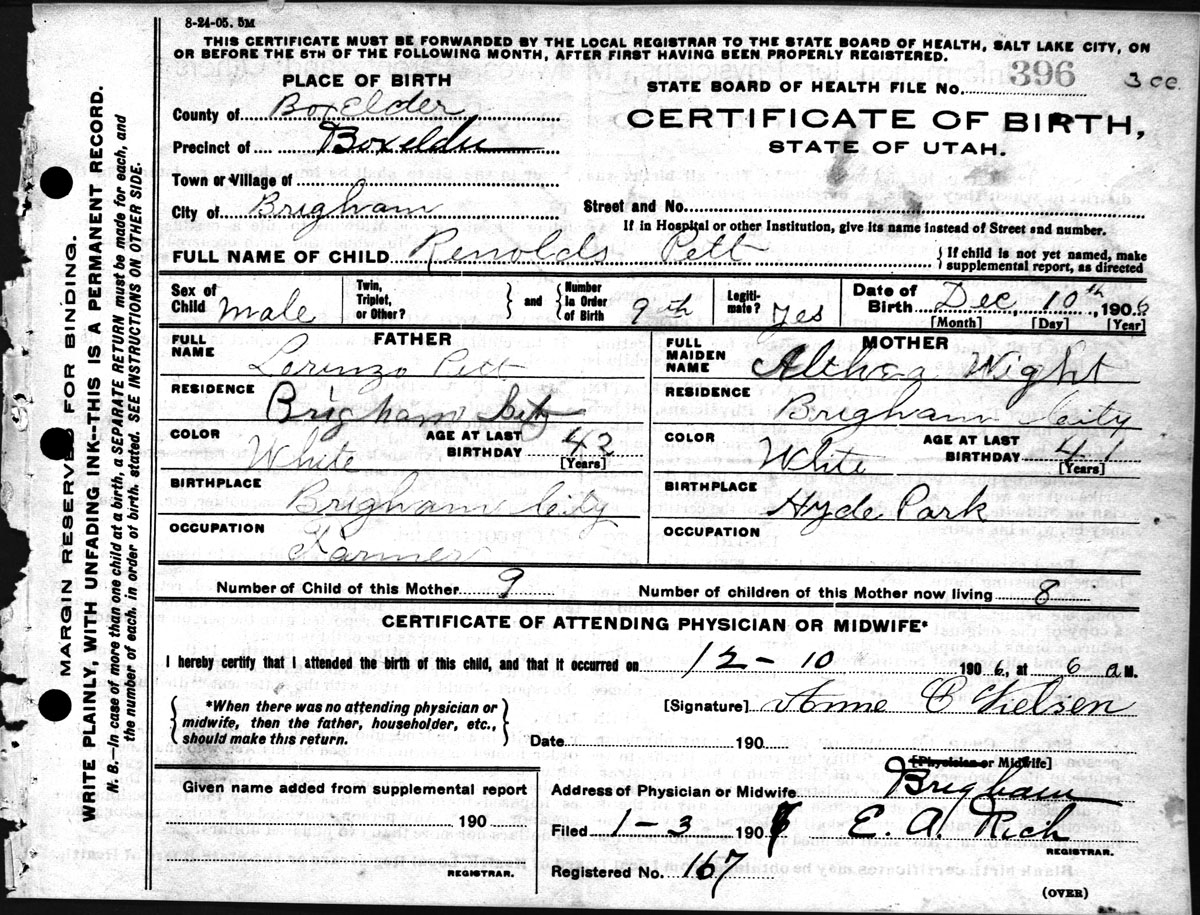 8-24-05. 5M
THIS CERTIFICATE MUST BE FORWARDED BY THE LOCAL REGISTRAR TO THE STATE BOARD OF HEALTH, SALT LAKE CITY, ON
OR BEFORE THE 5TH OF THE FOLLOWING MONTH, AFTER FIRST HAVING BEEN PROPERLY REGISTERED.
PLACE OF BIRTH
STATE BOARD OF HEALTH FILE No. 396
3 cc.
County of BoxElder
Precinct of Boxelder
CERTIFICATE OF BIRTH,
STATE OF UTAH.
Town or Village of
City of Brigham
Street and No.
If in Hospital or other Institution, give its name instead of Street and number.
FULL NAME OF CHILD Renolds Pett
{ If child is not yet named, make
supplemental report, as directed
Sex of Child male
Twin, Triplet, or Other? } and { Number in Order of Birth 9th
Legiti-mate? yes
Date of Birth Dec, 10th, 1906
[Month] [Day] [Year]
FATHER
FULL NAME Lorenzo Pett
RESIDENCE Brigham City
COLOR White
AGE AT LAST BIRTHDAY 43
[Years]
BIRTHPLACE Brigham City
OCCUPATION Farmer
MOTHER
FULL MAIDEN NAME Althea Wight
RESIDENCE Brigham City
COLOR White
AGE AT LAST BIRTHDAY 41
[Years]
BIRTHPLACE Hyde Park
OCCUPATION
Number of Child of this Mother 9 Number of children of this Mother now living 8
CERTIFICATE OF ATTENDING PHYSICIAN OR MIDWIFE*
I hereby certify that I attended the birth of this child, and that it occurred on 12-10 1906, at 6 a M.
{ *When there was no attending physician or
midwife, then the father, householder, etc.,
should make this return. }
[Signature] Anne C Nielsen
Date 190
[Physician or Midwife]
Given name added from supplemental report
190
REGISTRAR.
Address of Physician or Midwife Brigham
Filed 1-3 1907 E. A. Rich
REGISTRAR.
Registered No. 167
(OVER)
MARGIN RESERVED FOR BINDING.
WRITE PLAINLY, WITH UNFADING INK--THIS IS A PERMANENT RECORD.
N. B.—In case of more than one child at a birth, a SEPARATE RETURN must be made for each, and
the number of each, in order of birth, stated. SEE INSTRUCTIONS ON OTHER SIDE.